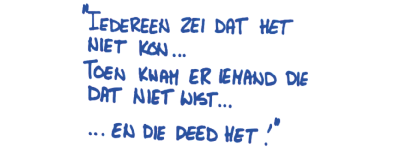 "IEDEREEN ZEI DAT HET
NIET KON...
TOEN KWAM ER IEMAND DIE
DAT NIET WIST...
... EN DIE DEED HET!"